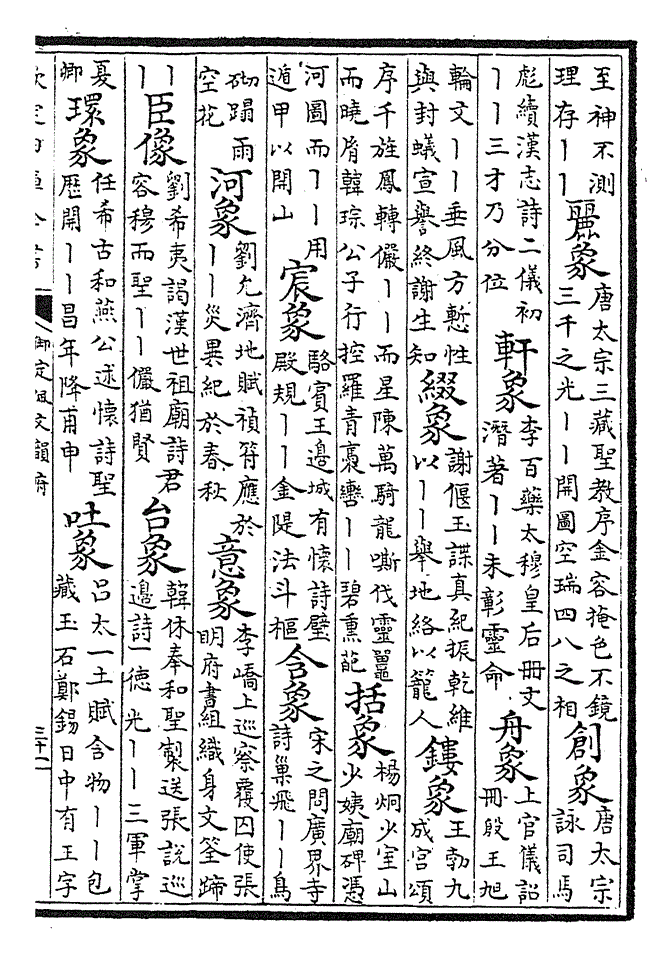 至神不測理存丨丨麗象唐太宗三藏聖教序金容掩色不鏡三千之光丨丨開圖空瑞四八之相創象唐太宗詠司馬
彪續漢志詩二儀初丨丨三才乃分位軒象李百藥太穆皇后冊文潛著丨丨未彰靈命舟象上官儀詔冊殷王旭
輪文丨丨垂風方慙性與封蟻宣譽終謝生知綴象謝偃玉諜真紀振乾維以丨丨舉地絡以籠人鏤象王勃九成宮頌
序千旌鳳轉儼丨丨而星陳萬騎龍嘶伐靈鼉而曉肩韓琮公子行控羅青裊轡丨丨碧熏葩括象楊炯少室山少姨廟碑憑
河圖而丨丨用遁甲以開山宸象駱賓王邊城有懷詩璧殿規丨丨金隄法斗樞含象宋之問廣界寺詩巢飛丨丨鳥
砌蹋雨空花河象劉允濟地賦禎符應於丨丨災異紀於春秋意象李嶠上巡察覆囚使張明府書組織身文筌蹄
丨丨丨丨臣像劉希夷謁漢世祖廟詩君容穆而聖丨丨儼猶賢台象韓休奉和聖製送張說巡邊詩一德光丨丨三軍掌
憂卿環象任希古和燕公述懷詩聖歷開丨丨昌年降甫申吐象呂太一土賦含物丨丨包藏玉石鄭錫日中有王字
欽定四庫全書
御定佩文韻府
三十一